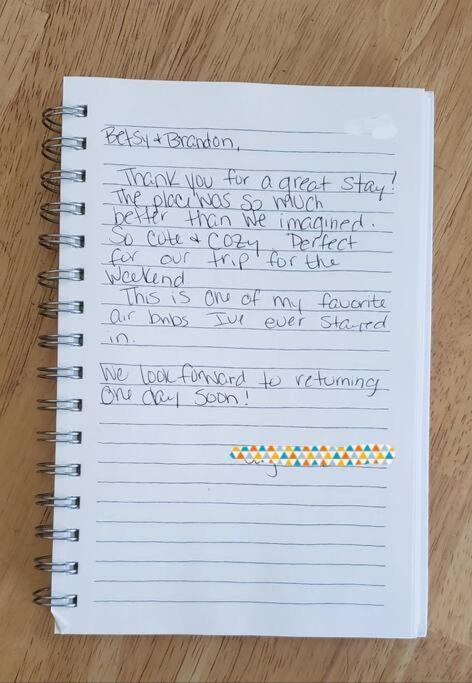 Betsy & Brandon,
Thank you for a great stay!
The place was so much
better than we imagined.
So cute & cozy. Perfect
for our trip for the
weekend
This is one of my favorite
air bnbs Ive ever stayed
in.
We look forward to returning
one day soon!